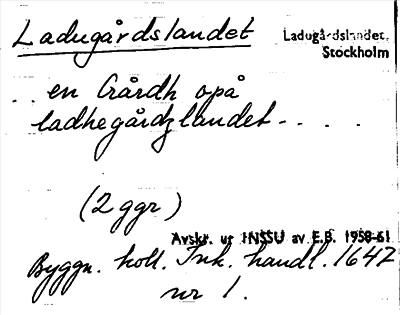 Ladugårdslandet
Ladugårdslandet,
Stockholm
.. en Gårdh opå
ladhegårdzlandet - . . .
(2 ggr)
Avskr. ur INSSU av E.B. 1958-61
Byggn. koll. Ink. handl. 1647
nr 1.